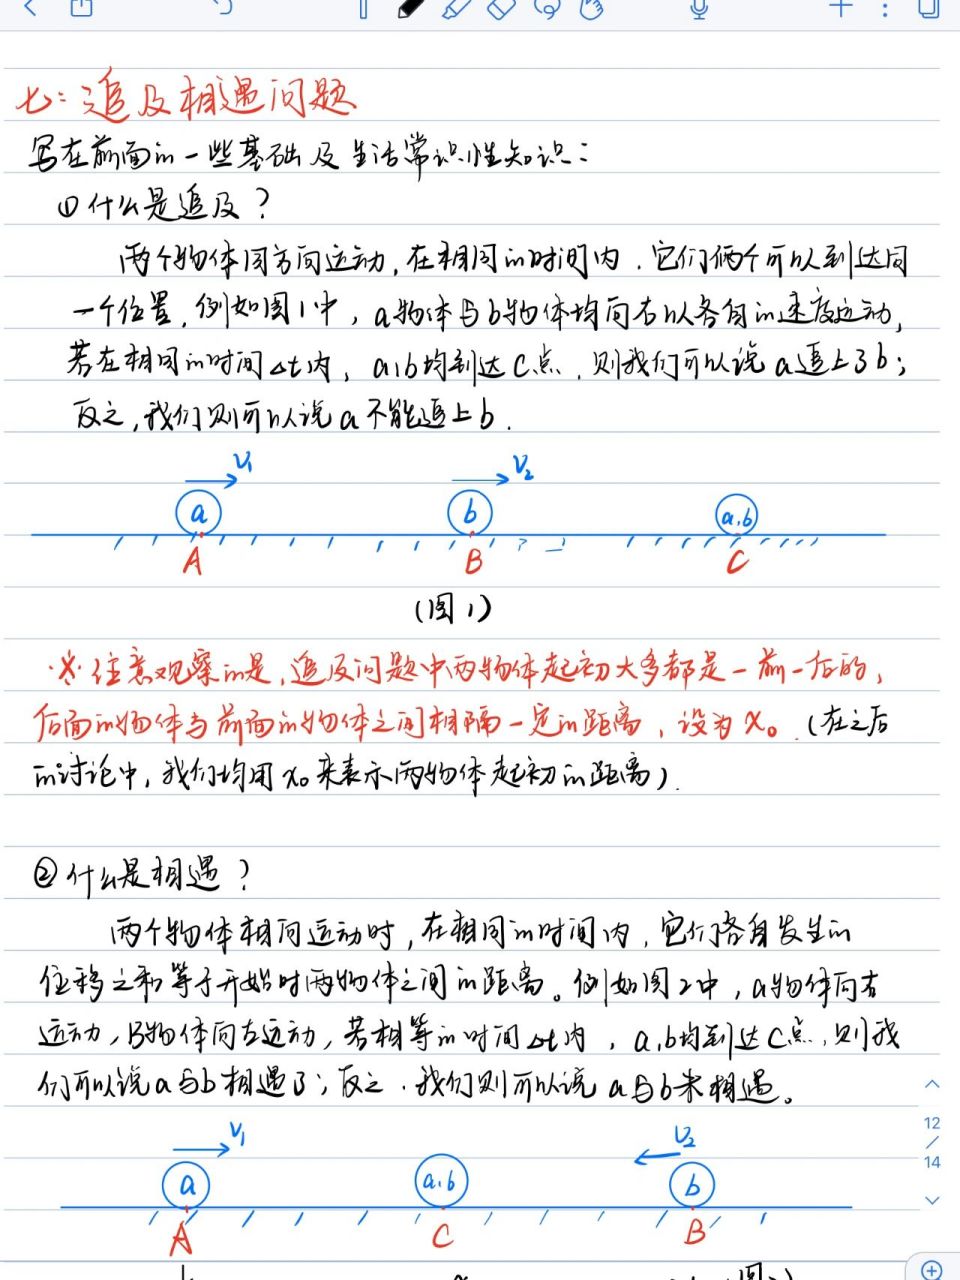 七：追及相遇问题
写在前面的一些基础及生活常识性知识：
①什么是追及？
两个物体同方向运动，在相同的时间内，它们俩个可以到达同
一个位置，例如图1中，a物体与b物体均向右以各自的速度运动，
若在相同的时间Δt内，a,b均到达C点，则我们可以说a追上了b；
反之，我们则可以说a不能追上b.
V₁ V₂
a b a,b
A B C
(图1)
※注意观察的是，追及问题中两物体起初大多都是一前一后的，
后面的物体与前面的物体之间相隔一定的距离，设为x₀.（在之后
的讨论中，我们均用x₀来表示两物体起初的距离）.
②什么是相遇？
两个物体相向运动时，在相同的时间内，它们各自发生的
位移之和等于开始时两物体之间的距离。例如图2中，a物体向右
运动，B物体向左运动，若相等的时间Δt内，a,b均到达C点，则我
们可以说a与b相遇了；反之，我们则可以说a与b未相遇。
V₁ V₂
a a,b b
A C B
12
/
14